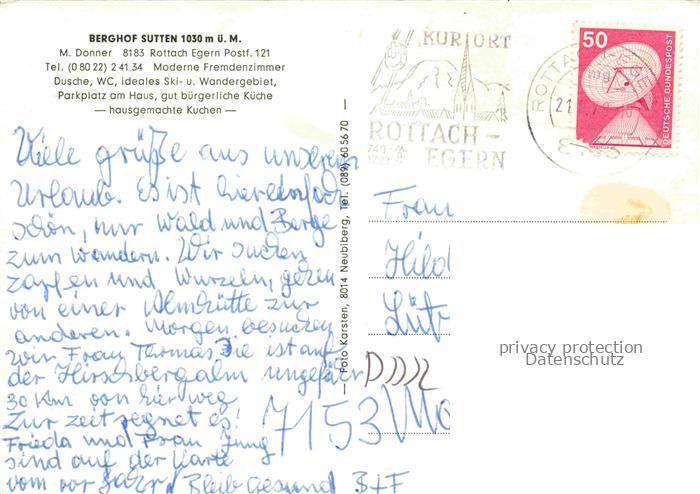 BERGHOF SUTTEN 1030 m ü. M.
M. Donner 8183 Rottach Egern Postf. 121
Tel. (0 80 22) 2 41 34 Moderne Fremdenzimmer
Dusche, WC, ideales Ski- u. Wandergebiet,
Parkplatz am Haus, gut bürgerliche Küche
— hausgemachte Kuchen —
KURORT
ROTTACH-
EGERN
50
DEUTSCHE BUNDESPOST
Viele grüße aus unserem
Urlaub. Es ist hier einfach
schön, nur Wald und Berge
zum wandern. Wir suchen
zapfen und Wurzeln, gehen
von einer Almhütte zur
anderen. Morgen besuchen
wir Frau Termas Sie ist auf
der Hirschbergalm ungefähr
30 Km von hier weg
Zur zeit regnet es!
Frieda und Frau Jung
sind auf der Karte
vom vor Jahr. Bleib Gesund B+F
— Foto Karsten, 8014 Neubiberg, Tel. (089) 60 56 70 —
Frau
Hild
Lüt
DDR
7153 Mo
privacy protection
Datenschutz